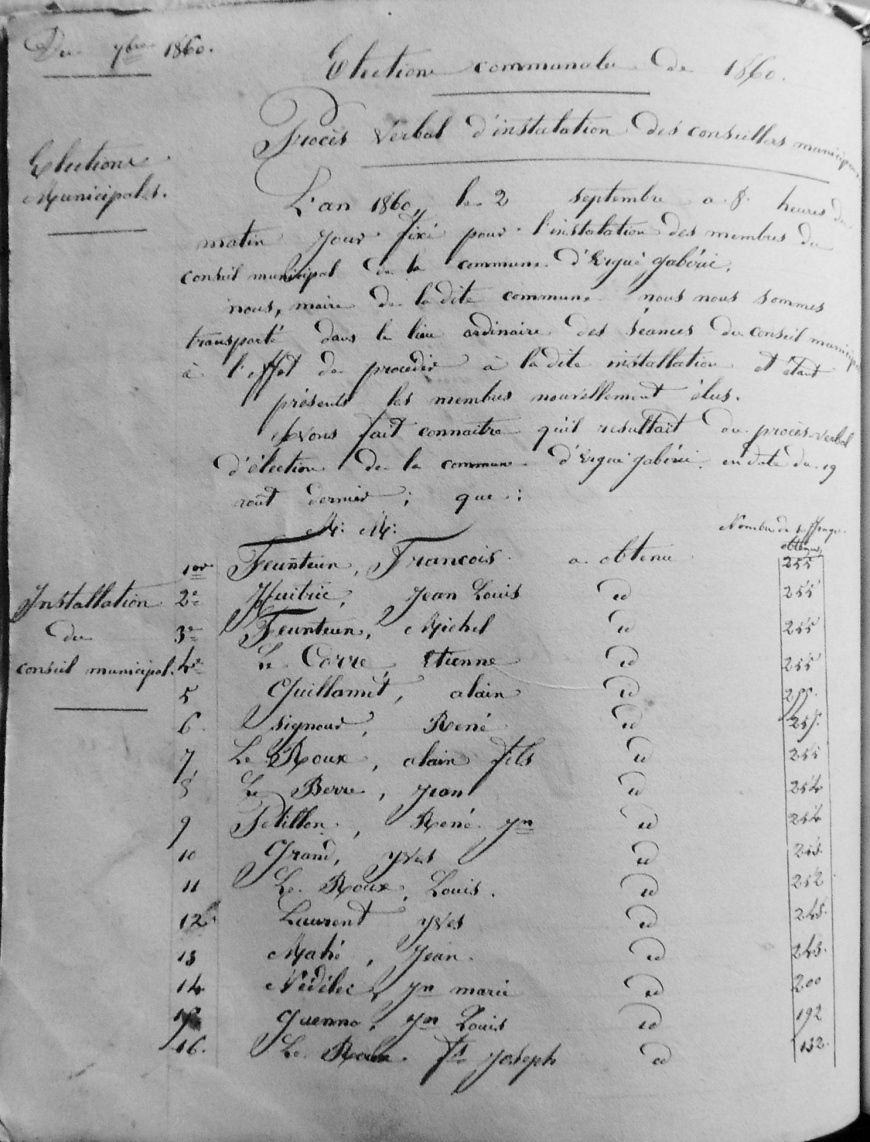 Du 7bre 1860.
Election communale de 1860.
Procès Verbal d'instalation des conseillers municipaux
Elections
Municipales.
L'an 1860, le 2 septembre a 8 heures du
matin jour fixé pour l'instalation des membres du
conseil municipal de la commune d'Ergué gabéric.
nous, maire de la dite commune nous nous sommes
transporté dans le lieu ordinaire des séances du conseil municipal
à l'effet de procéder à ladite installation et étant
présents les membres nouvellement élus.
Avons fait connaitre qu'il resultait du procès verbal
d'élection de la commune d'Ergué gabéric. en date du 19
aout dernier ; que :
M. M. Nombre de suffrages
obtenus
1er Feunteun, François. a obtenu 255
Installation
du
conseil municipal.
2e Huitric, Jean Louis id 255
3e Feunteun, Michel id 255
4e Le Corre Etienne id 255
5 Guillamet, alain id 255.
6. Signour, René id 255.
7 Le Roux, alain fils id 255
8 Le Berre, Jean id 254
9 Pétillon, René jn id 254
10 Grand, yves id
11 Le Roux, Louis. id 252
12. Laurent yves id 248.
13 Mahé, Jean. id 248.
14 Nédélec, jn marie id 200
15 Guenno, jn Louis id 192
16. Le Roux fs joseph id 132.